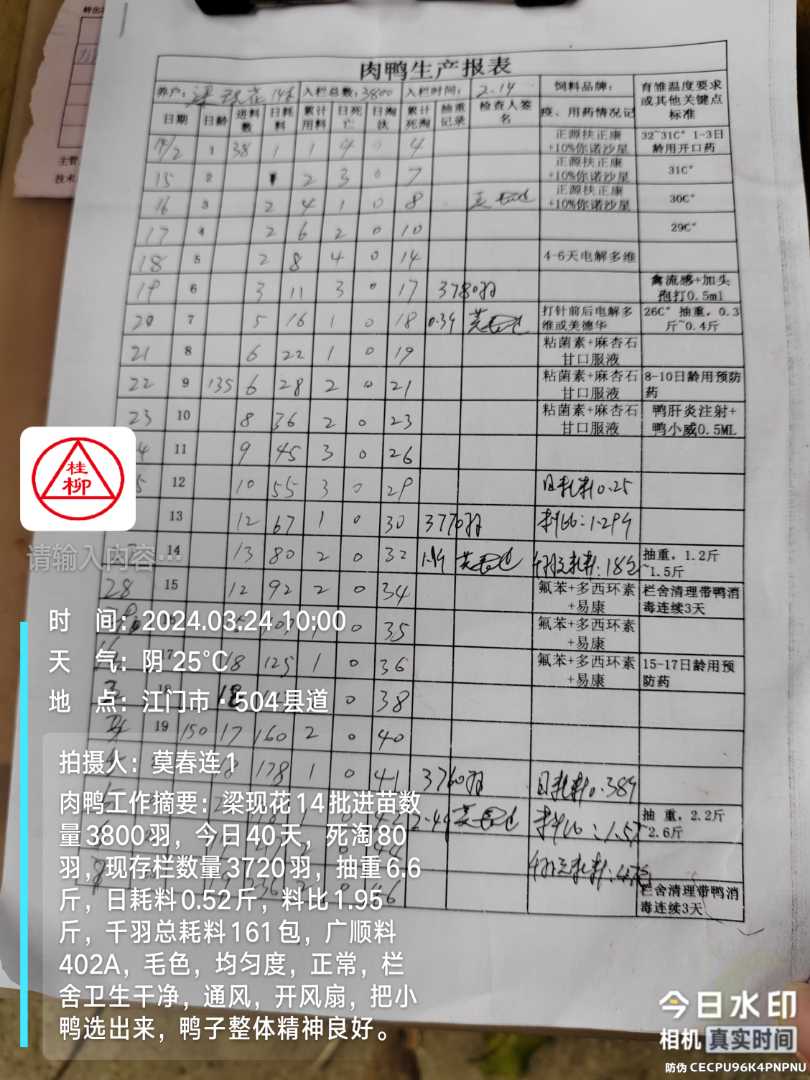 肉鸭生产报表
养户: 梁现花 14批 入栏总数: 3800 入栏时间: 2.14 饲料品牌: 育雏温度要求或其他关键点标准
日期 日龄 送料数 日耗料 累计用料 日死亡 日淘汰 累计死淘 抽重记录 检查人签名 疫、用药情况记
1 38 1 1 4 0 4 正源扶正康+10%你诺沙星 32~31C° 1-3日龄用开口药
15 2 2 3 0 7 正源扶正康+10%你诺沙星 31C°
16 3 2 4 1 0 8 正源扶正康+10%你诺沙星 30C°
17 4 2 6 2 0 10 29C°
18 5 2 8 4 0 14 4-6天电解多维
19 6 3 11 3 0 17 3780羽 禽流感+加头孢打0.5ml
20 7 5 16 1 0 18 0.34 莫春连 打针前后电解多维或美德华 26C° 抽重，0.3斤~0.4斤
21 8 6 22 1 0 19 粘菌素+麻杏石甘口服液
22 9 135 6 28 2 0 21 粘菌素+麻杏石甘口服液 8-10日龄用预防药
23 10 8 36 2 0 23 粘菌素+麻杏石甘口服液 鸭肝炎注射+鸭小威0.5ML
11 9 45 3 0 26
12 10 55 3 0 29 日耗料0.25
13 12 67 1 0 30 3770羽 料比:1.29斤
14 13 80 2 0 32 莫春连 抽重，1.2斤~1.5斤
28 15 12 92 2 0 34 氟苯+多西环素+易康 栏舍清理带鸭消毒连续3天
35 氟苯+多西环素+易康
18 125 1 0 36 氟苯+多西环素+易康 15-17日龄用预防药
18 0 38
19 150 17 160 2 0 40
178 1 0 41 3760羽 日耗料0.38斤
莫春连 料比:1.5 抽 重，2.2斤 2.6斤
栏舍清理带鸭消毒连续3天
主管
技术
桂柳
请输入内容…
时 间：2024.03.24 10:00
天 气：阴 25℃
地 点：江门市·504县道
拍摄人：莫春连1
肉鸭工作摘要：梁现花14批进苗数
量3800羽，今日40天，死淘80
羽，现存栏数量3720羽，抽重6.6
斤，日耗料0.52斤，料比1.95
斤，千羽总耗料161包，广顺料
402A，毛色，均匀度，正常，栏
舍卫生干净，通风，开风扇，把小
鸭选出来，鸭子整体精神良好。
今日水印
相机 真实时间
防伪 CECPU96K4PNPNU